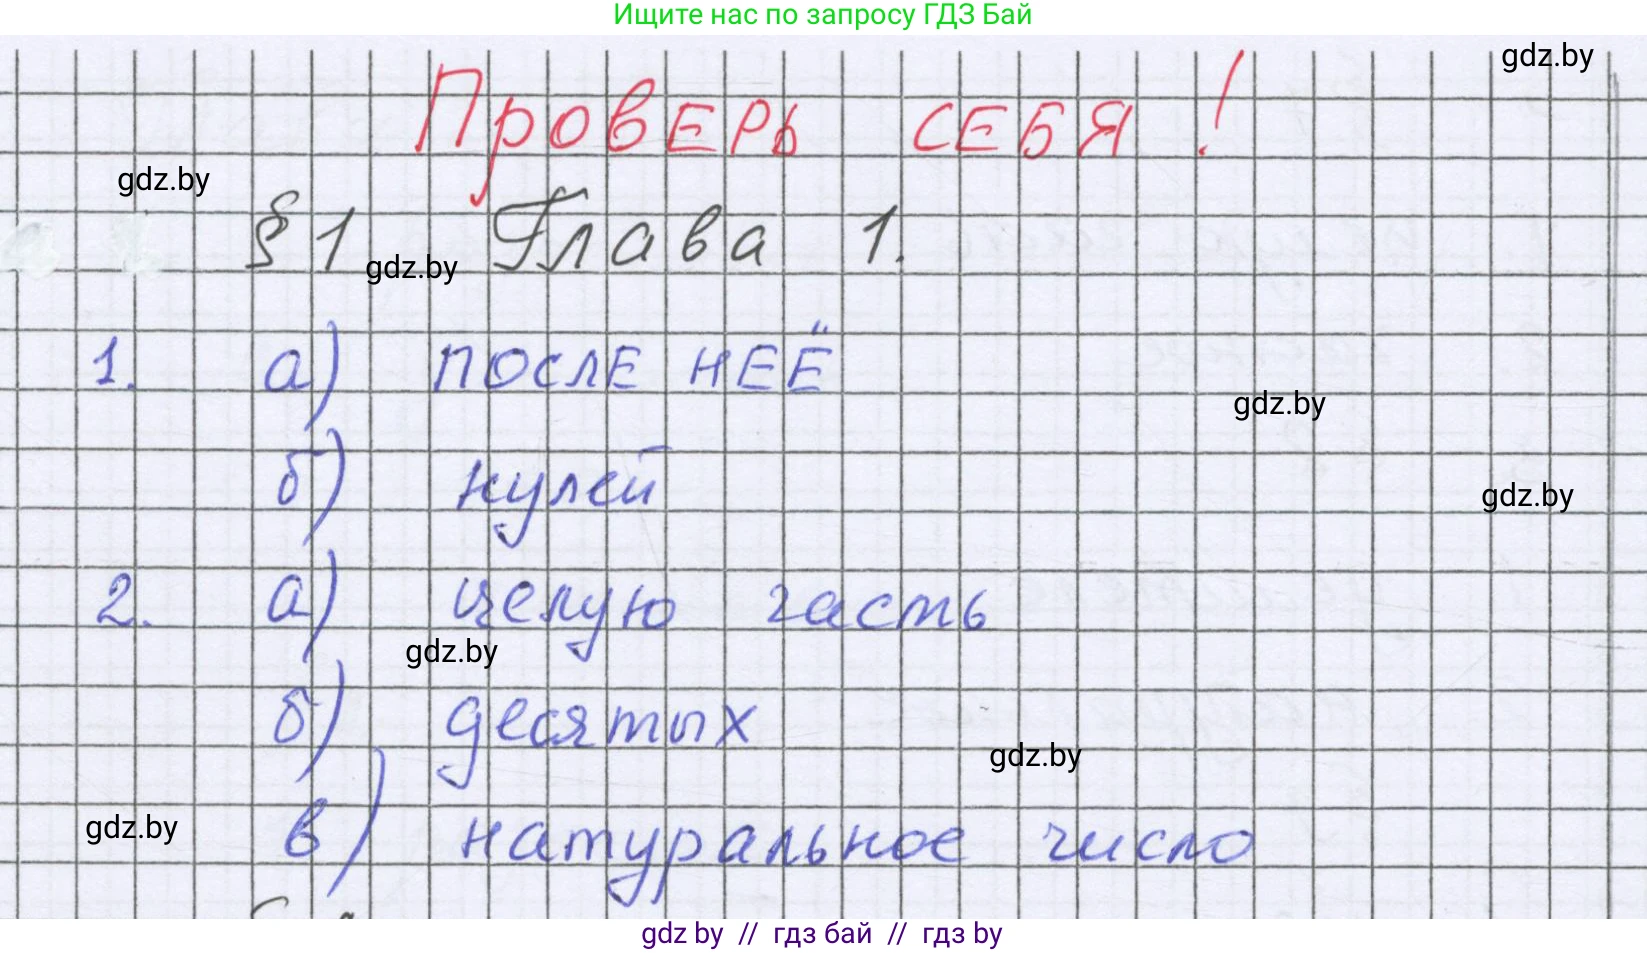 Ищите нас по запросу ГДЗ Бай
gdz.by
Проверь себя!
gdz.by
§1 Глава 1.
gdz.by
1. а) после неё
gdz.by
б) нулей
gdz.by
2. а) целую часть
gdz.by
б) десятых
gdz.by
gdz.by
в) натуральное число
gdz by // гдз бай // гдз by